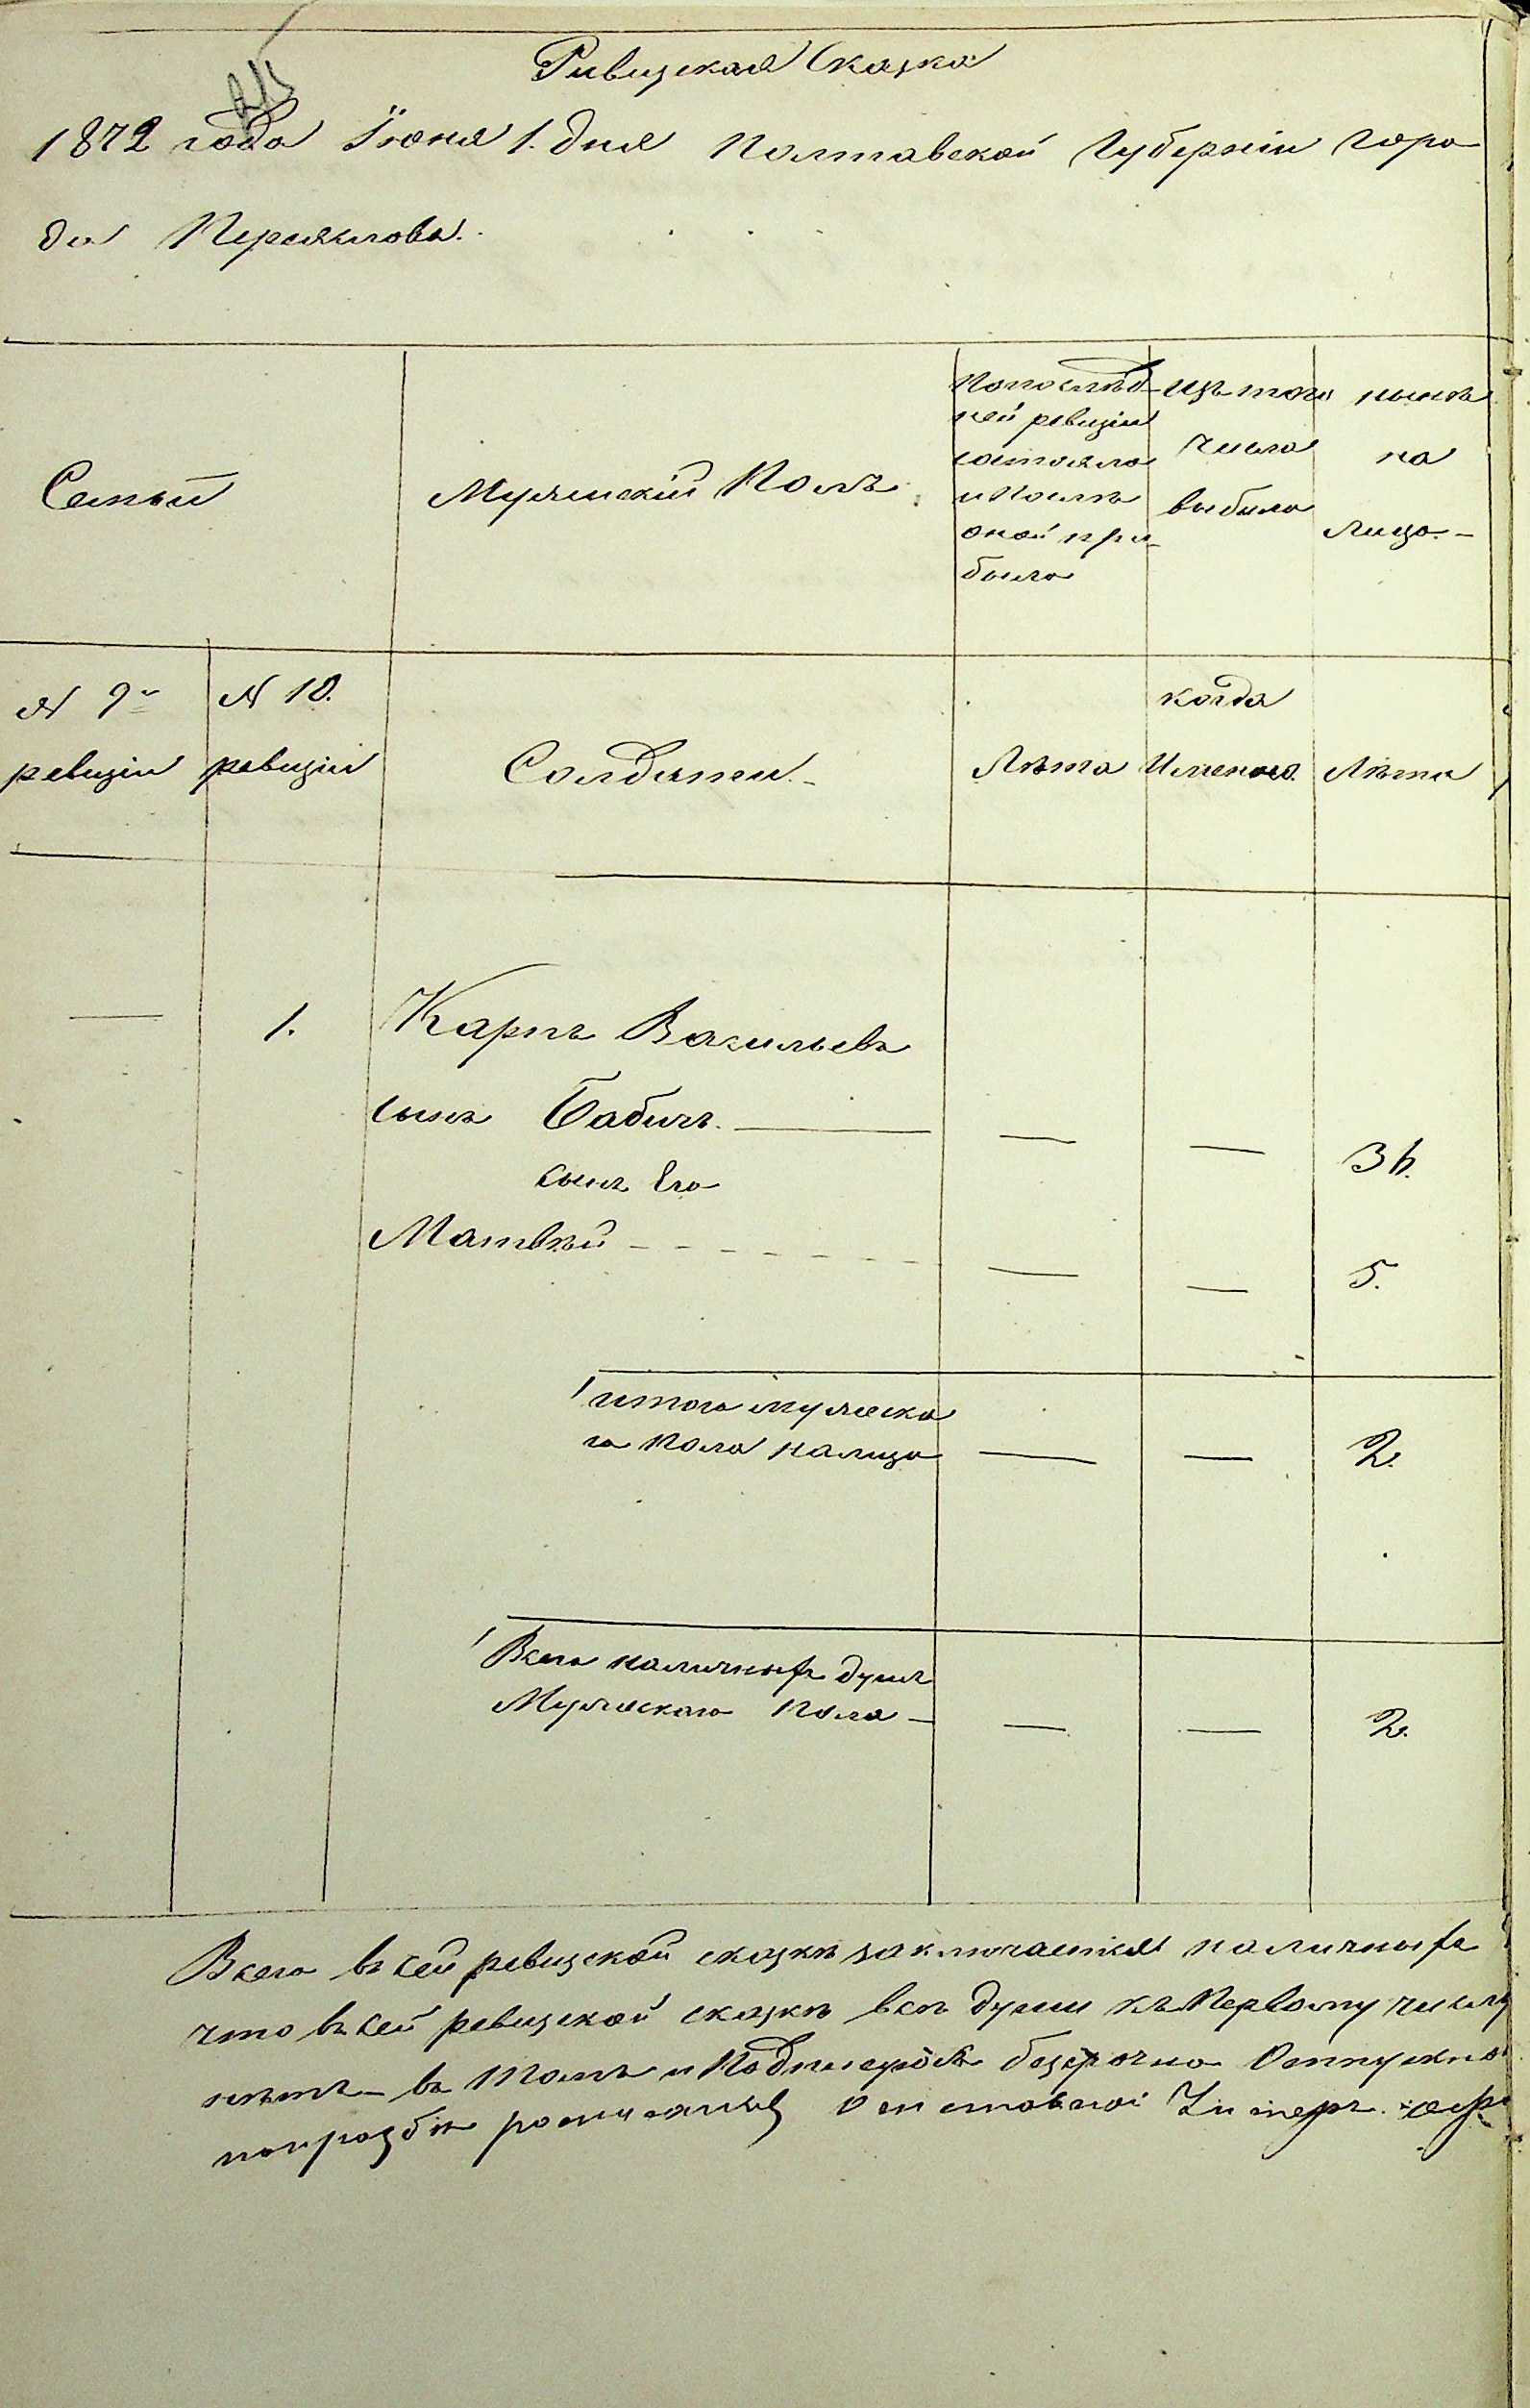 Ривизская Сказка
1872 года Іюня 1. дня Полтавской Губерніи горо
да Переяслова.
Семьи
Мужескій Полъ
Попослѣд-
ней ревизіи
состояло
и послѣ
оной при-
было
изъ того
числа
выбыло
нынѣ
на
лицо.-
№ 9й
ревизіи
№ 10.
ревизіи
Солдаты.-
Лѣта
когда
Именно.
Лѣта
— 1. Карпъ Васильевъ
сынъ Бабичъ. — — — 36.
сынъ Его
Матвѣй - - - - - - — — 5.
итого мужеска
го пола налицо — — 2.
Всего наличныхъ душъ
Мужескаго пола - — — 2.
Всего въ сей ревизской сказкѣ заключается наличныхъ
что въ сей ревизской сказкѣ всѣ души къ Первому числу
нѣтъ - въ томъ и Подписуюсь безсрочно Отпускно